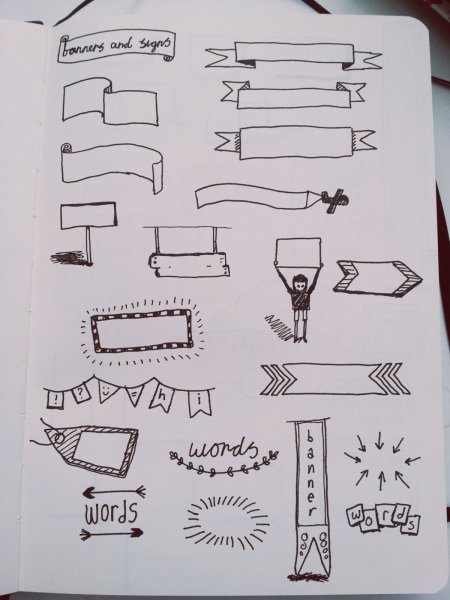 banners and signs
! ? = h i
words
banner
words
words